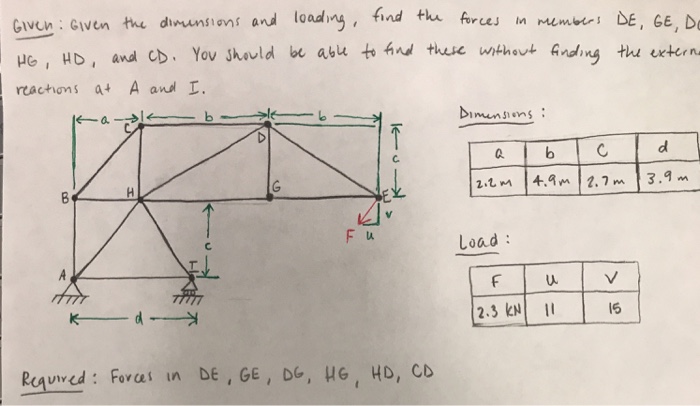 Given: Given the dimensions and loading, find the forces in members DE, GE, D
HG, HD, and CD. You should be able to find these without finding the extern
reactions at A and I.
a b b
Dimensions:
C
D
c
a b c d
2.2m 4.9m 2.7m 3.9m
B H G E
v
F u
c
Load:
A I
F u v
2.3 kN 11 15
d
Required: Forces in DE, GE, DG, HG, HD, CD